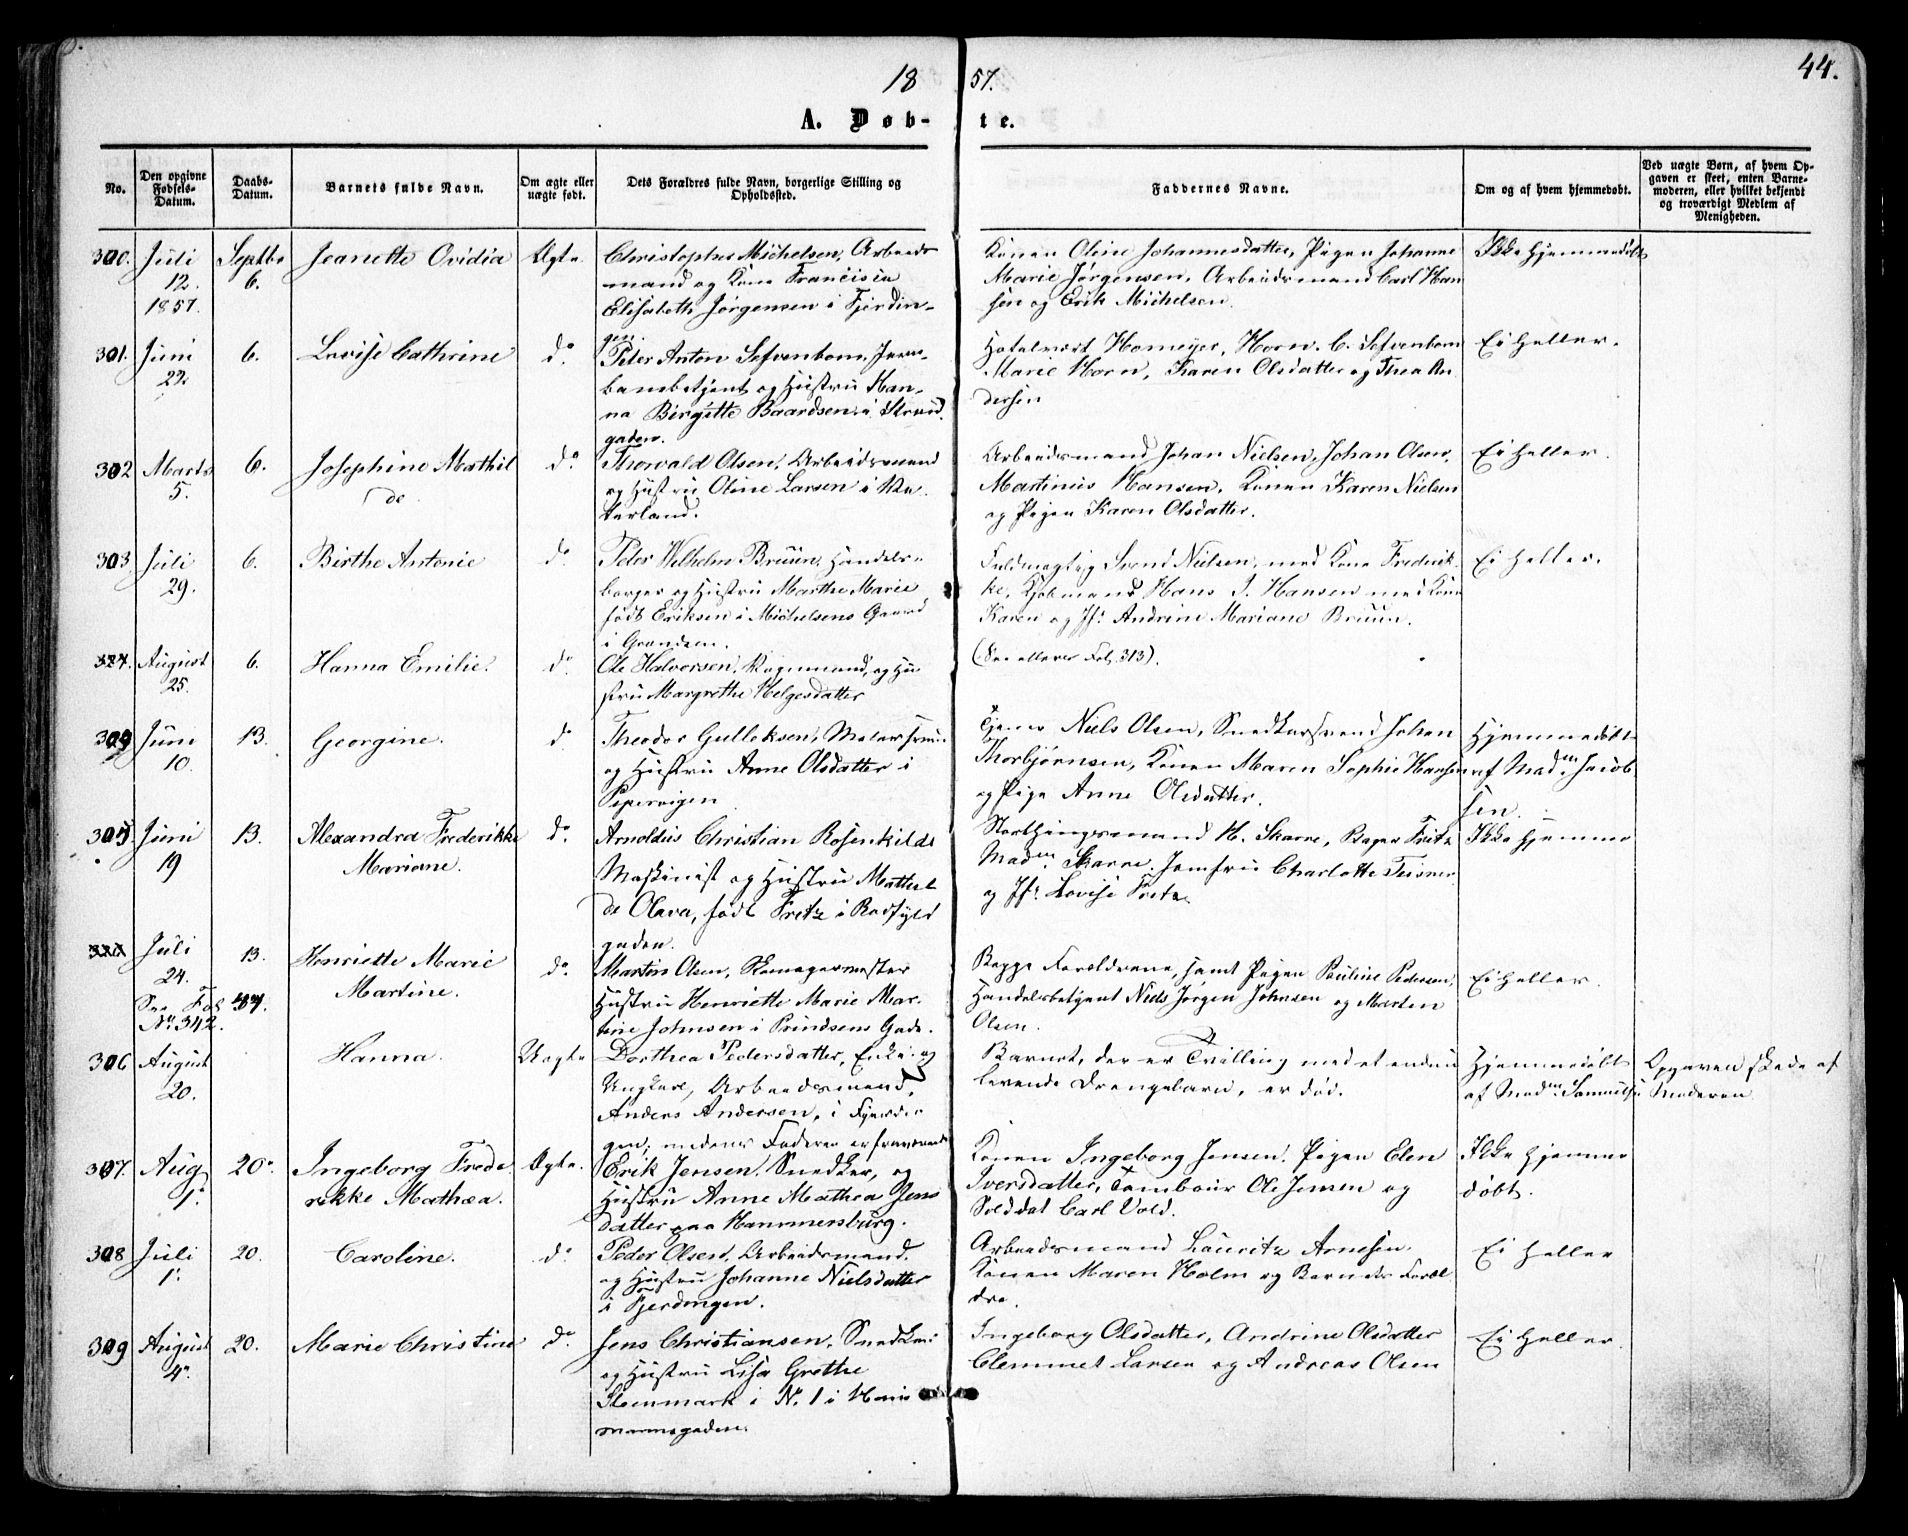 44.
18 57.
A. Døb- te.
No.
Den opgivne Fødsels-Datum.
Daabs-Datum.
Barnets fulde Navn.
Om ægte eller uægte født.
Dets Forældres fulde Navn, borgerlige Stilling og Opholdssted.
Faddernes Navne.
Om og af hvem hjemmedøbt.
Ved uægte Børn, af hvem Opgaven er skeet, enten Barnemoderen, eller hvilket bekjendt og troværdigt Medlem af Menigheden.
300. Juli 12. 1857. Septbr 6. Jeanette Ovidia Ægte.
Christopher Michelsen, Arbeids
mand og Kone Francisca
Elisabeth Jørgensen i Fjerdin-
gen.
Konen Oline Johannesdatter, Pigen Johanne
Marie Jørgensen, Arbeidsmand Carl Han
sen og Erik Michelsen.
Ikke hjemmedøbt
301. Juni 22. 6. Lovise Cathrine do.
Peter Anton Sefvenbom, Jern-
banebetjent og Hustru Han-
na Birgitte Baardsen i Strand
gaden.
Hotelvært Homeyer, Horn. C. Sefvenbom
Marie Horn, Karen Olsdatter og Thea An
dersen
Ei heller.
302 Marts 5. 6. Josephine Mathil
de do.
Thorvald Olsen, Arbeidsmand
og Hustru Oline Larsen i Va
terland.
Arbeidsmand Johan Nielsen, Johan Olsen,
Martinus Hansen, Konen Karen Nielsen
og Pigen Karen Olsdatter.
Ei heller.
303 Juli 29. 6. Birthe Antonie do
Peter Wilhelm Bruun, Handels-
borger og Hustru Marthe Marie
født Eriksen i Michelsens Gaard
i Grændsen.
Fuldmægtig Svend Nielsen, med Kone Frederik
ke, Kjøbmand Hans J. Hansen med Kone
Karen og Jfr. Andrine Mariane Bruun.
Ei heller.
August 25. 6. Hanna Emilie. do.
Ole Halvorsen, Vognmand, og Hu
stru Margrethe Helgesdatter
(See ellers Fol. 313).
304 Juni 10. 13. Georgine. do
Theodor Gulliksen, Malersvend
og Hustru Anne Olsdatter i
Pipervigen
Tjener Niels Olsen, Snedkersvend Johan
Thorbjørnsen, Konen Maren Sophie Hansen
og Pige Anne Olsdatter.
Hjemmedøbt
af Madm. Jacob
sen.
305. Juni 19 13. Alexandra Frederikke
Mariane. do.
Arnoldus Christian Rosenkilde
Maskinist og Hustru Mathil
de Olava, født Fretz i Raadhus
gaden.
Storthingsmand H. Skarre, Bager Fritz
Madm. Skarre, Jomfru Charlotte
og Jfr. Lovise
Ikke hjemme
Juli 24. 13. Henriette Marie
Martine. do.
See Fol
No. 342.
Martin Olsen, Skomagermester
Hustru Henriette Marie Mar-
tine Johnsen i Prindsens Gade.
Begge Forældrene, samt Pigen Pauline Pedersen,
Handelsbetjent Niels Jørgen Johnsen og Morten
Olsen.
Ei heller.
306 August 20. Hanna. Uægte
Dorthea Pedersdatter, Enke og
Ungkarl, Arbeidsmand,
Anders Andersen, i Fjerdin
gen; medens Faderen er fraværende
Barnet, der er Tvilling med et endnu
levende Drengebarn, er død.
Hjemmedøbt
af Madm. Samuelsen
Opgaven skede af
Moderen
307. Aug 1. 20. Ingeborg Frede
rikke Mathea. Ægte.
Erik Jensen, Snedker, og
Hustru Anne Mathea Jens
datter paa Hammersborg.
Konen Ingeborg Jensen, Pigen Elen
Iversdatter, Tambour Ole Jensen og
Soldat Carl Vold.
Ikke hjemme
døbt.
308 Juli 1. 20. Caroline. do
Peder Olsen, Arbeidsmand.
og Hustru Johanne Nielsdatter
i Fjerdingen.
Arbeidsmand Lauritz Arnesen.
Konen Maren Holm og Barnets Foræl
dre.
Ei heller
309 August 4. 20. Marie Christine do.
Jens Christiansen, Snedker
og Hustru Lisa Grethe
Stenmark i No. 1 i Haus
mannsgaden.
Ingeborg Olsdatter, Andrine Olsdatter
Clemmet Larsen og Andreas Olsen
Ei heller.